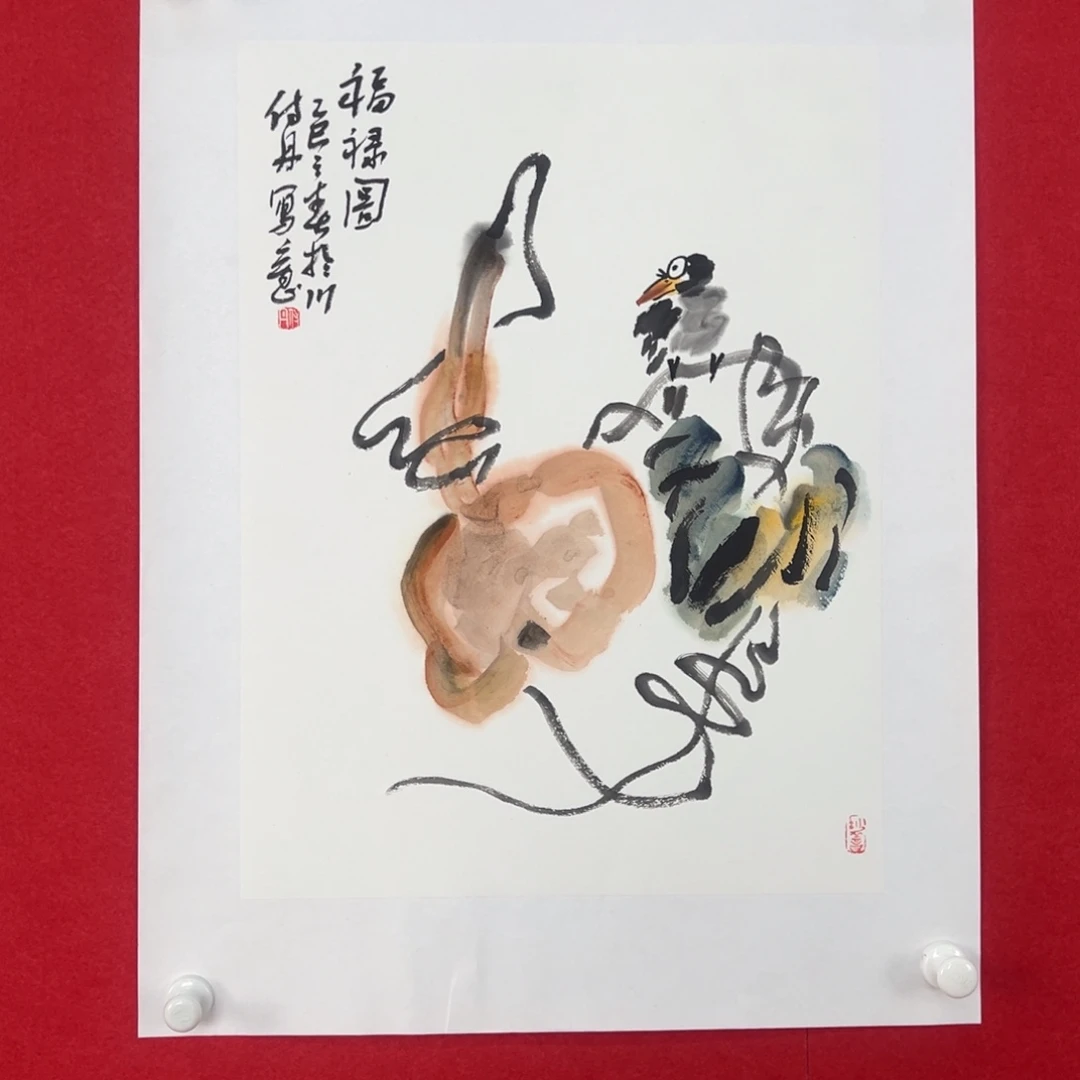 福禄圖
乙巳之春於川
付丹寫意